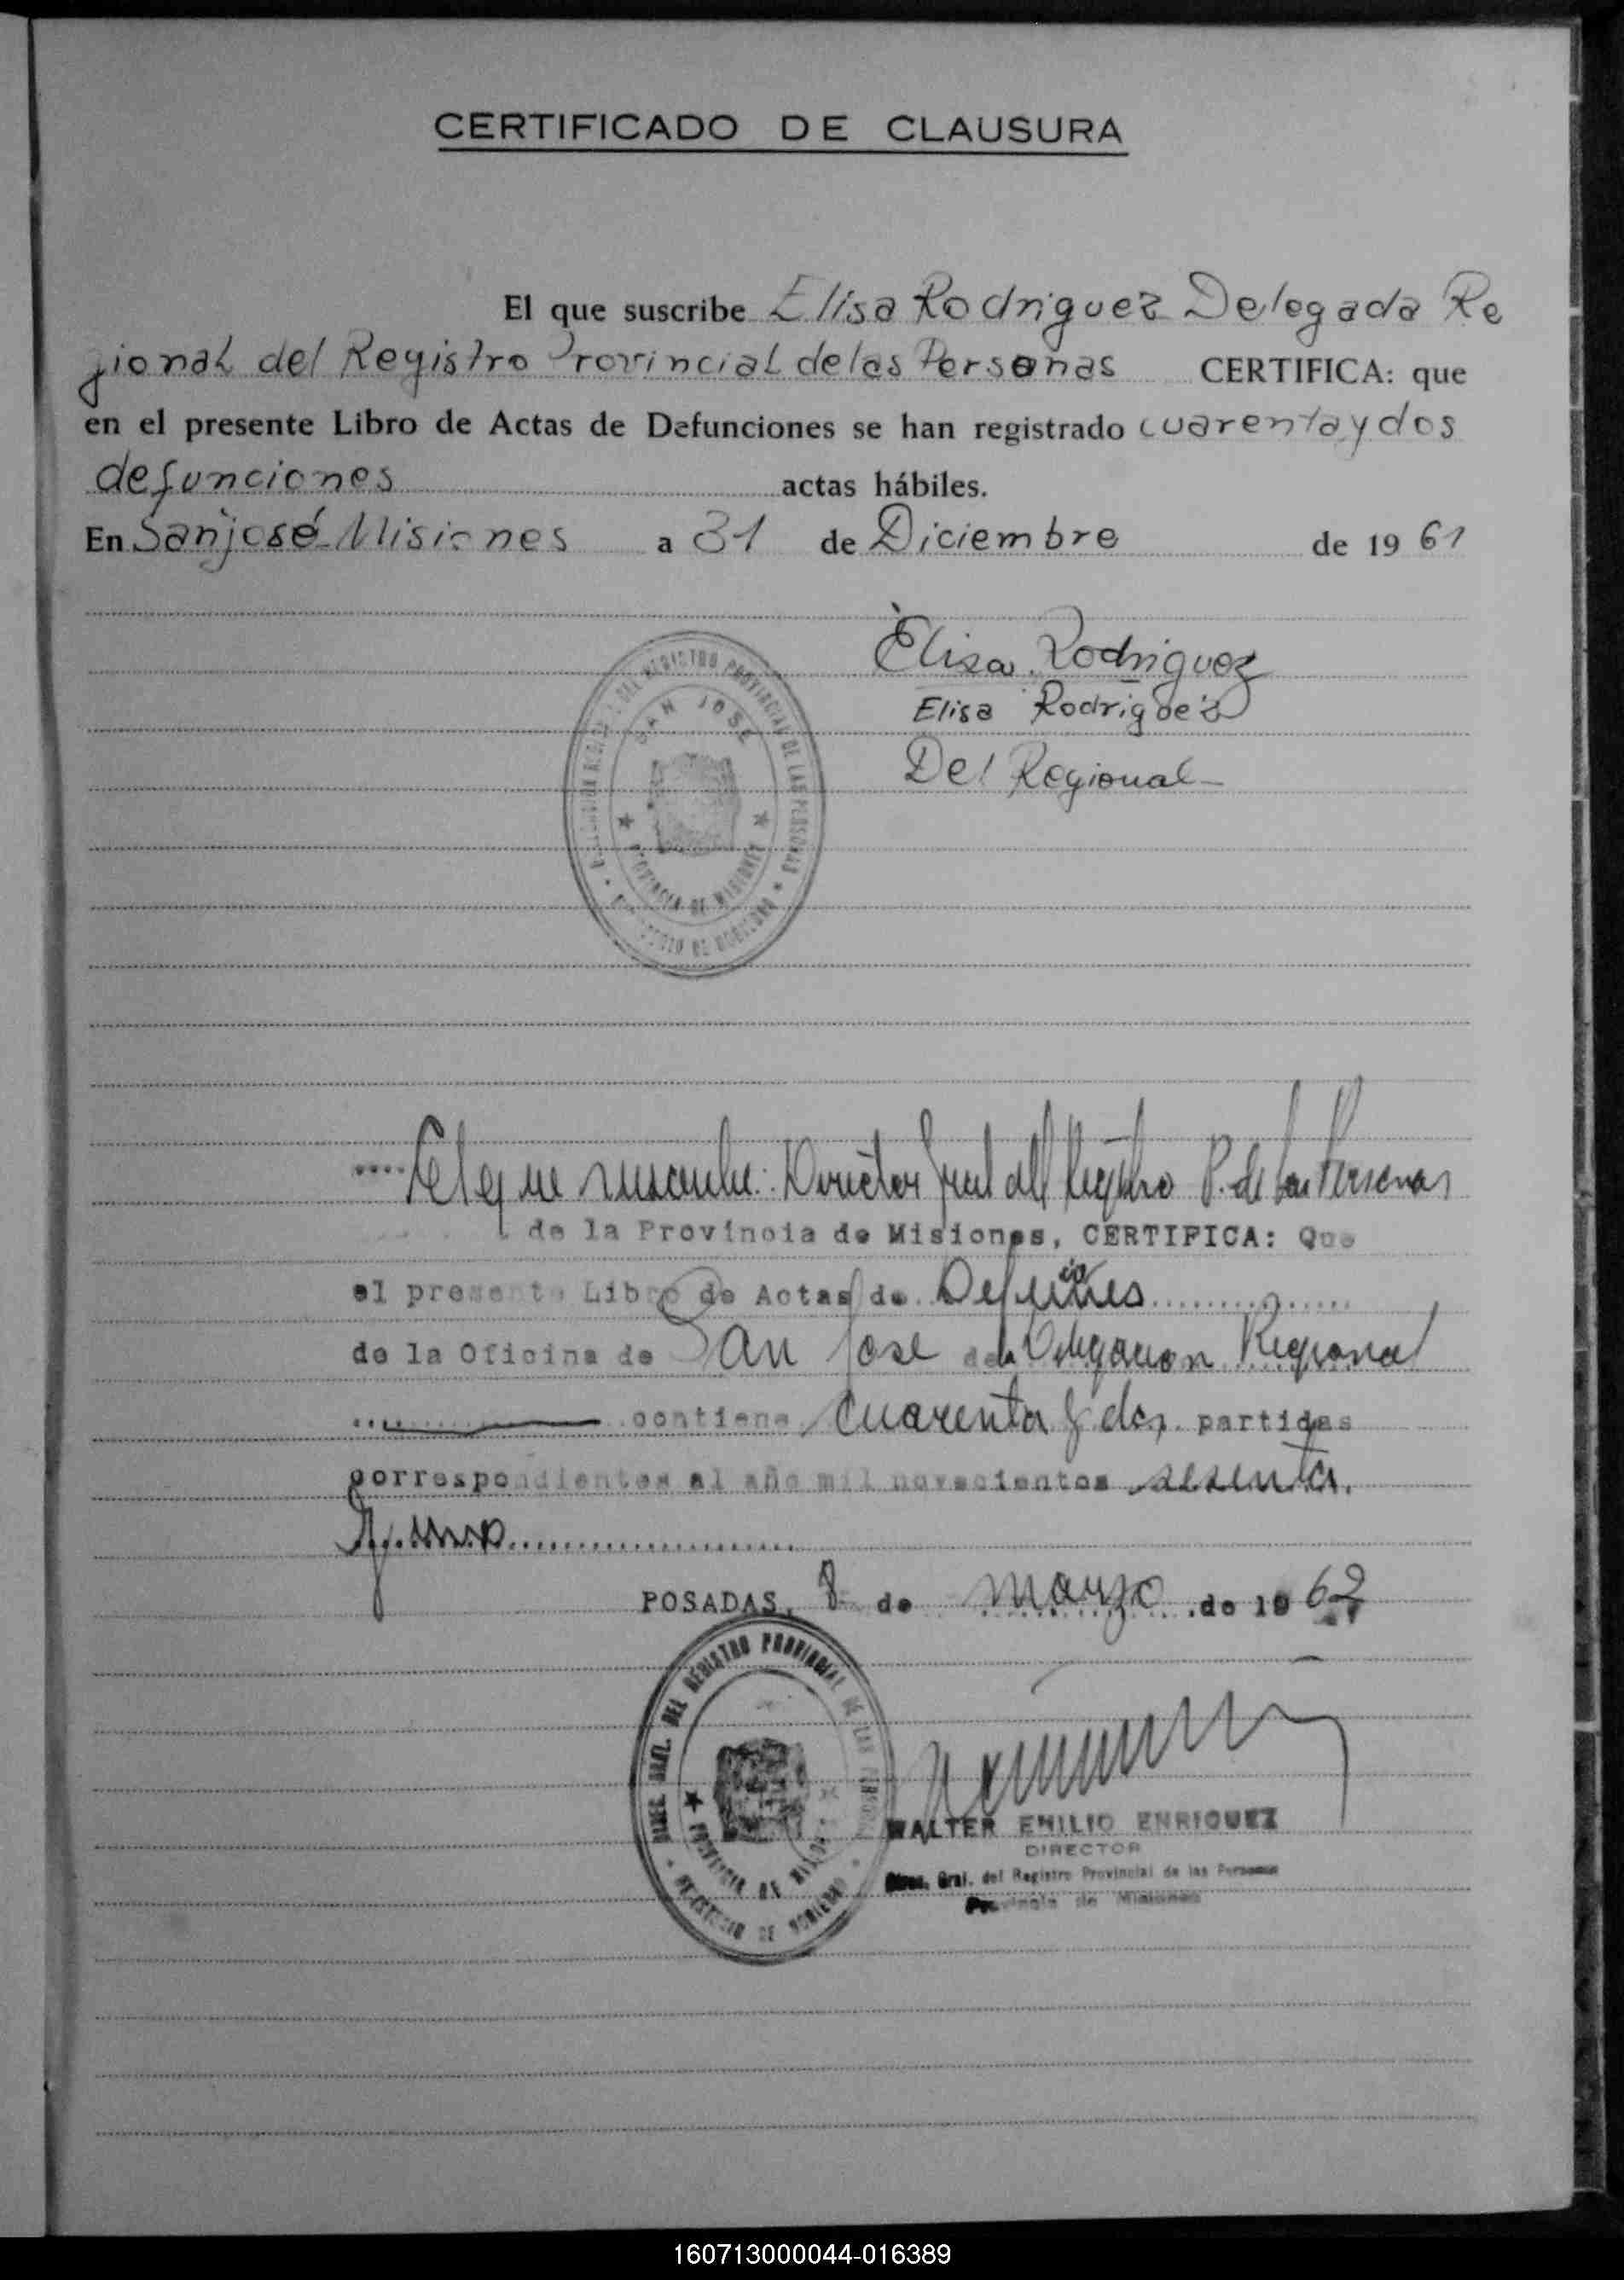 CERTIFICADO DE CLAUSURA
El que suscribe Elisa Rodriguez Delegada Re
gional del Registro Provincial de las Personas CERTIFICA: que
en el presente Libro de Actas de Defunciones se han registrado cuarenta y dos
defunciones actas hábiles.
En San josé Misiones a 31 de Diciembre de 1961
Elisa Rodriguez
Elisa Rodriguez
Del Regional
DEL REGISTRO PROVINCIAL DE LAS PERSONAS
SAN JOSE
PROVINCIA DE MISIONES
DE GOBIERNO
El que suscribe: Director Gral del Registro P. de las Personas
de la Provincia de Misiones, CERTIFICA: Que
el presente Libro de Actas de Defunciones
de la Oficina de San Jose de la Delegacion Regional
contiene cuarenta y dos partidas
correspondientes al año mil novecientos sesenta
y uno
POSADAS, 8 de marzo de 1962
GRAL. DEL REGISTRO PROVINCIAL DE LAS PERSONAS
PROVINCIA DE MISIONES
MINISTERIO DE GOBIERNO
WALTER EMILIO ENRIQUEZ
DIRECTOR
Direc. Gral. del Registro Provincial de las Personas
Provincia de Misiones
160713000044-016389